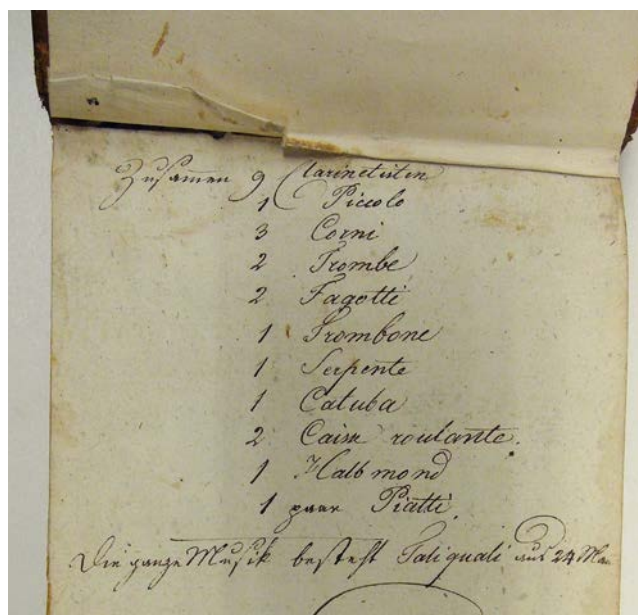 Zusamen 9 Clarinetisten
1 Piccolo
3 Corni
2 Trombe
2 Fagotti
1 Trombone
1 Serpente
1 Catuba
2 Caise roulante.
1 Halbmond
1 paar Piatti.
Die ganze Musik besteht Taliquali aus 24 Man